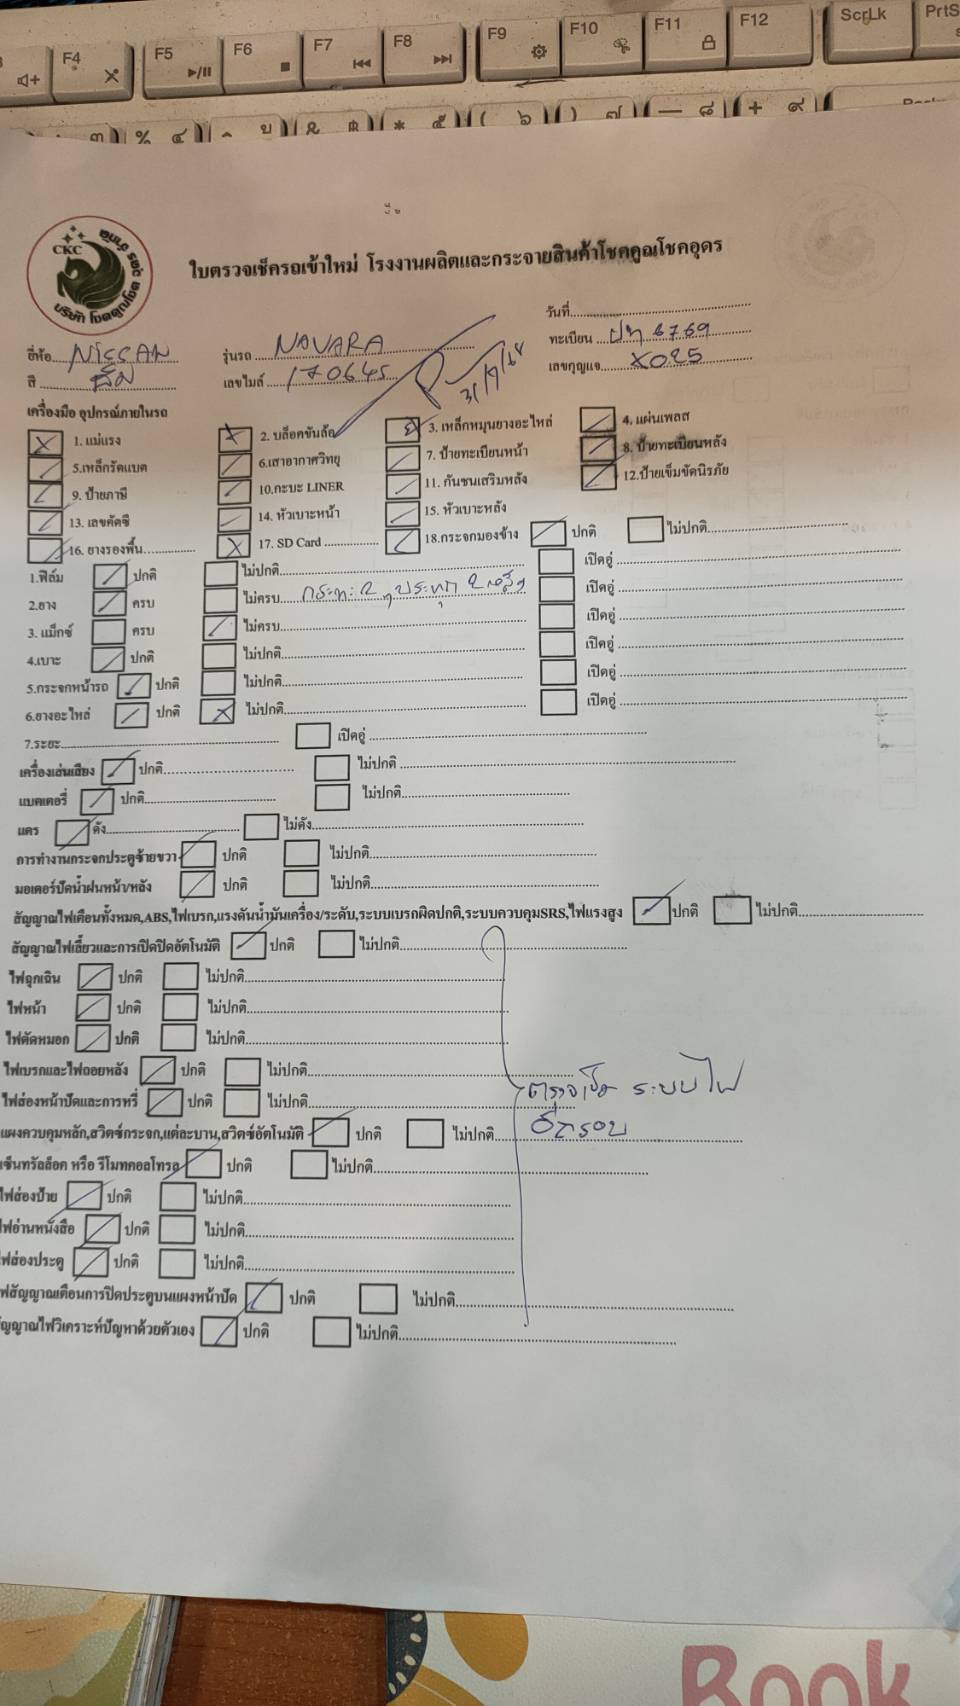 F4 F5 F6 F7 F8 F9 F10 F11 F12 ScrLk PrtS
๓ % ๔ ู ฿ * ๕ ( ๖ ) ๗ — ๘ + ๙
CKC
บริษัท โชคคูณโชค อุดร จำกัด
ใบตรวจเช็ครถเข้าใหม่ โรงงานผลิตและกระจายสินค้าโชคคูณโชคอุดร
วันที่
ยี่ห้อ NISSAN รุ่นรถ NAVARA ทะเบียน 6769
สี ส้ม เลขไมล์ 170645 เลขกุญแจ X025
31/7/68
เครื่องมือ อุปกรณ์ภายในรถ
1. แม่แรง 2. บล็อคขันล้อ 3. เหล็กหมุนยางอะไหล่ 4. แผ่นเพลส
5.เหล็กรัดแบต 6.เสาอากาศวิทยุ 7. ป้ายทะเบียนหน้า 8. ป้ายทะเบียนหลัง
9. ป้ายภาษี 10.กะบะ LINER 11. กันชนเสริมหลัง 12.ป้ายเข็มขัดนิรภัย
13. เลขคัตซี 14. หัวเบาะหน้า 15. หัวเบาะหลัง
16. ยางรองพื้น 17. SD Card 18.กระจกมองข้าง ปกติ ไม่ปกติ
1.ฟิล์ม ปกติ ไม่ปกติ เปิดอู่
2.ยาง ครบ ไม่ครบ กระทะ 2 บรรทุก 2 เส้น เปิดอู่
3. แม็กซ์ ครบ ไม่ครบ เปิดอู่
4.เบาะ ปกติ ไม่ปกติ เปิดอู่
5.กระจกหน้ารถ ปกติ ไม่ปกติ เปิดอู่
6.ยางอะไหล่ ปกติ ไม่ปกติ เปิดอู่
7.ระยะ เปิดอู่
เครื่องเล่นเสียง ปกติ ไม่ปกติ
แบตเตอรี่ ปกติ ไม่ปกติ
แตร ดัง ไม่ดัง
การทำงานกระจกประตูซ้ายขวา ปกติ ไม่ปกติ
มอเตอร์ปัดน้ำฝนหน้า/หลัง ปกติ ไม่ปกติ
สัญญาณไฟเตือนทั้งหมด,ABS,ไฟเบรก,แรงดันน้ำมันเครื่อง/ระดับ,ระบบเบรกผิดปกติ,ระบบควบคุมSRS,ไฟแรงสูง ปกติ ไม่ปกติ
สัญญาณไฟเลี้ยวและการเปิดปิดอัตโนมัติ ปกติ ไม่ปกติ
ไฟฉุกเฉิน ปกติ ไม่ปกติ
ไฟหน้า ปกติ ไม่ปกติ
ไฟตัดหมอก ปกติ ไม่ปกติ
ไฟเบรกและไฟถอยหลัง ปกติ ไม่ปกติ
ไฟส่องหน้าปัดและการหรี่ ปกติ ไม่ปกติ
ตรวจเช็ค ระบบไฟ
อีกรอบ
แผงควบคุมหลัก,สวิตช์กระจก,แต่ละบาน,สวิตช์อัตโนมัติ ปกติ ไม่ปกติ
เซ็นทรัลล็อค หรือ รีโมทคอลโทรล ปกติ ไม่ปกติ
ไฟส่องป้าย ปกติ ไม่ปกติ
ไฟอ่านหนังสือ ปกติ ไม่ปกติ
ไฟส่องประตู ปกติ ไม่ปกติ
ไฟสัญญาณเตือนการปิดประตูบนแผงหน้าปัด ปกติ ไม่ปกติ
สัญญาณไฟวิเคราะห์ปัญหาด้วยตัวเอง ปกติ ไม่ปกติ
Book